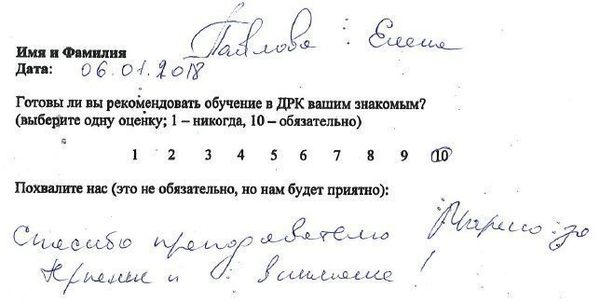 Имя и Фамилия Павлова Елена
Дата: 06.01.2018
Готовы ли вы рекомендовать обучение в ДРК вашим знакомым?
(выберите одну оценку; 1 – никогда, 10 – обязательно)
1 2 3 4 5 6 7 8 9 10
Похвалите нас (это не обязательно, но нам будет приятно):
Спасибо преподавателю за
и внимание!